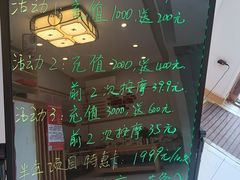 活动1:充值1000,送200元
活动2:充值2000,送400元
前2次按摩39.9元
活动3:充值3000,送600元
前2次按摩35元
半年项目特惠卡:1999元/